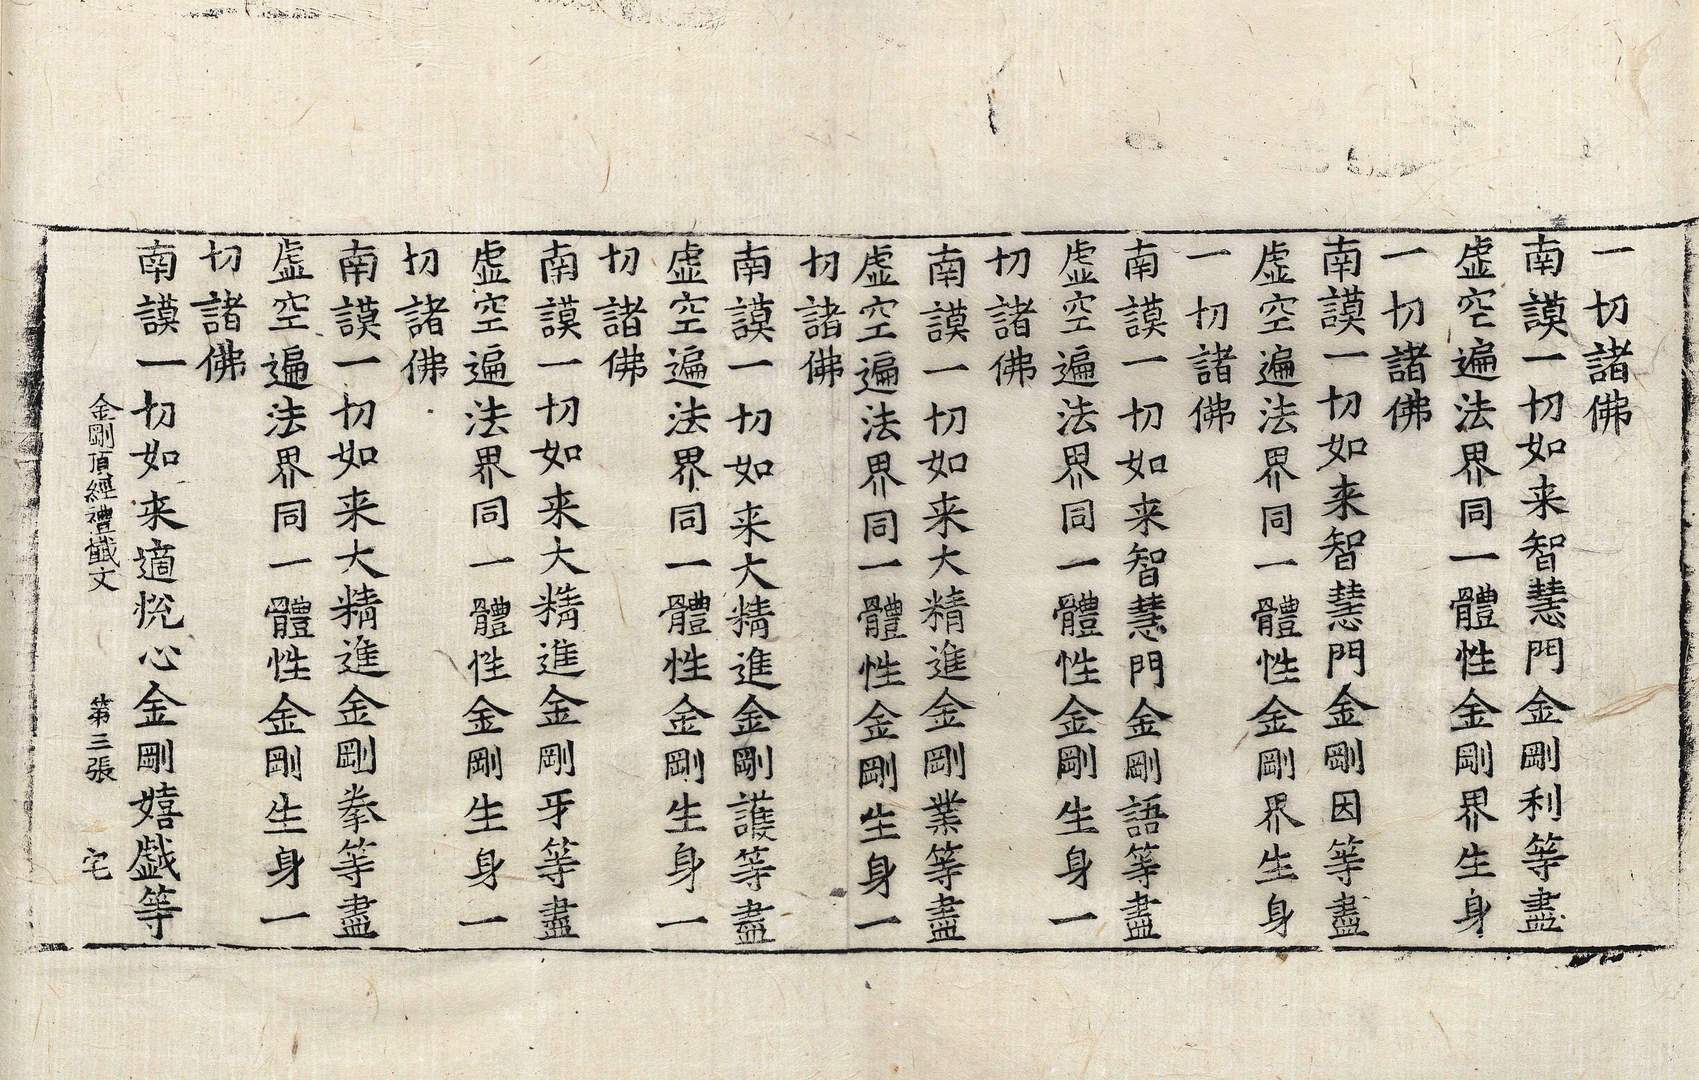 一切諸佛
南謨一切如来智慧門金剛利等盡
虛空遍法界同一體性金剛界生身
一切諸佛
南謨一切如来智慧門金剛因等盡
虛空遍法界同一體性金剛界生身
一切諸佛
南謨一切如来智慧門金剛語等盡
虛空遍法界同一體性金剛生身一
切諸佛
南謨一切如来大精進金剛業等盡
虛空遍法界同一體性金剛生身一
切諸佛
南謨一切如来大精進金剛護等盡
虛空遍法界同一體性金剛生身一
切諸佛
南謨一切如来大精進金剛牙等盡
虛空遍法界同一體性金剛生身一
切諸佛
南謨一切如来大精進金剛拳等盡
虛空遍法界同一體性金剛生身一
切諸佛
南謨一切如来適悅心金剛嬉戲等
金剛頂經禮懺文 第三張 宅